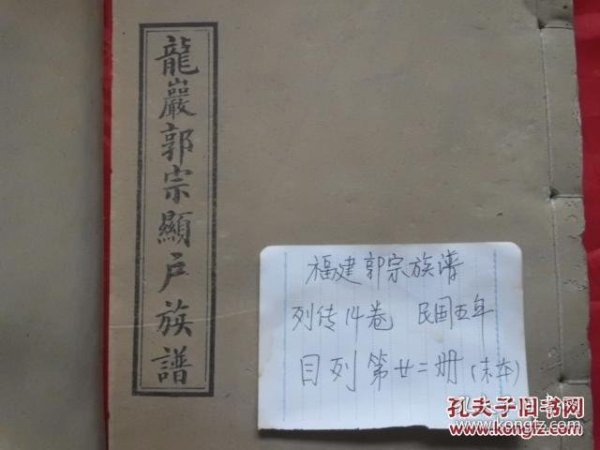 龍巖郭宗顯戶族譜
福建郭宗族谱
列传14卷 民国五年
目列第廿二册(末本)
孔夫子旧书网
www.kfz.cn